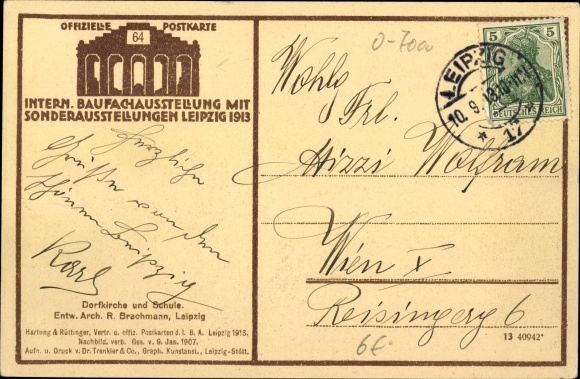 OFFIZIELLE POSTKARTE
64
INTERN. BAUFACHAUSSTELLUNG MIT
SONDERAUSSTELLUNGEN LEIPZIG 1913
Herzliche
Grüße von den
Leipzig
Karl
Dorfkirche und Schule.
Entw. Arch. R. Brachmann, Leipzig
Hartung & Rüttinger, Vertr. u. offiz. Postkarten d. I. B. A. Leipzig 1913.
Nachbild. verb. Ges. v. 9. Jan. 1907.
Aufn. u. Druck v. Dr. Trenkler & Co., Graph. Kunstanst., Leipzig-Stött.
0-70a
LEIPZIG
10.9.13.
* 17 *
5 5
DEUTSCHES REICH
Wohlg
Frl.
Mizzi Wolfram
Wien X
Reisingerg 6
6€
13 40942*